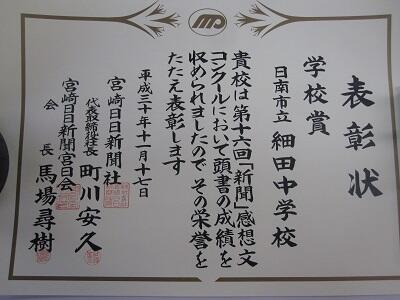 表彰状
学校賞
日南市立 細田中学校
貴校は第十六回「新聞」感想文
コンクールにおいて頭書の成績を
収められましたので その栄誉を
たたえ表彰します
平成三十年十一月十七日
宮崎日日新聞社
代表取締役社長 町川安久
宮崎日日新聞宮日会
会長 馬場尋樹